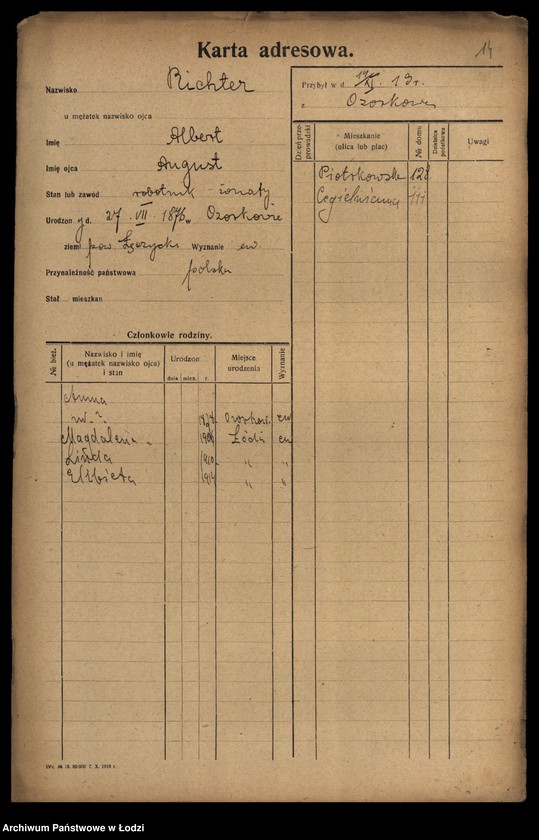 14
Karta adresowa.
Nazwisko Richter
u mężatek nazwisko ojca
Imię Albert
Imię ojca August
Stan lub zawód robotnik żonaty
Urodzon y d. 27 VII 1876 w Ozorkowie
ziemi pow. Łęczycki Wyznanie ew
Przynależność państwowa polska
Stał mieszkan
Przybył w d. XI. 13 r.
z Ozorkowa
Dzień przeprowadzki
Mieszkanie (ulica lub plac)
№ domu
Uwagi
Piotrkowska 128
Cegielniana 111
Członkowie rodziny.
№ bież.
Nazwisko i imię
(u mężatek nazwisko ojca)
i stan
Urodzon
dnia mies. r.
Miejsce urodzenia
Wyznanie
Anna
nw.? Ozorków ew
Magdalena Łódź ew
Linda 1910 " "
Elżbieta 1914 " "
7. X. 1919 r.
Archiwum Państwowe w Łodzi